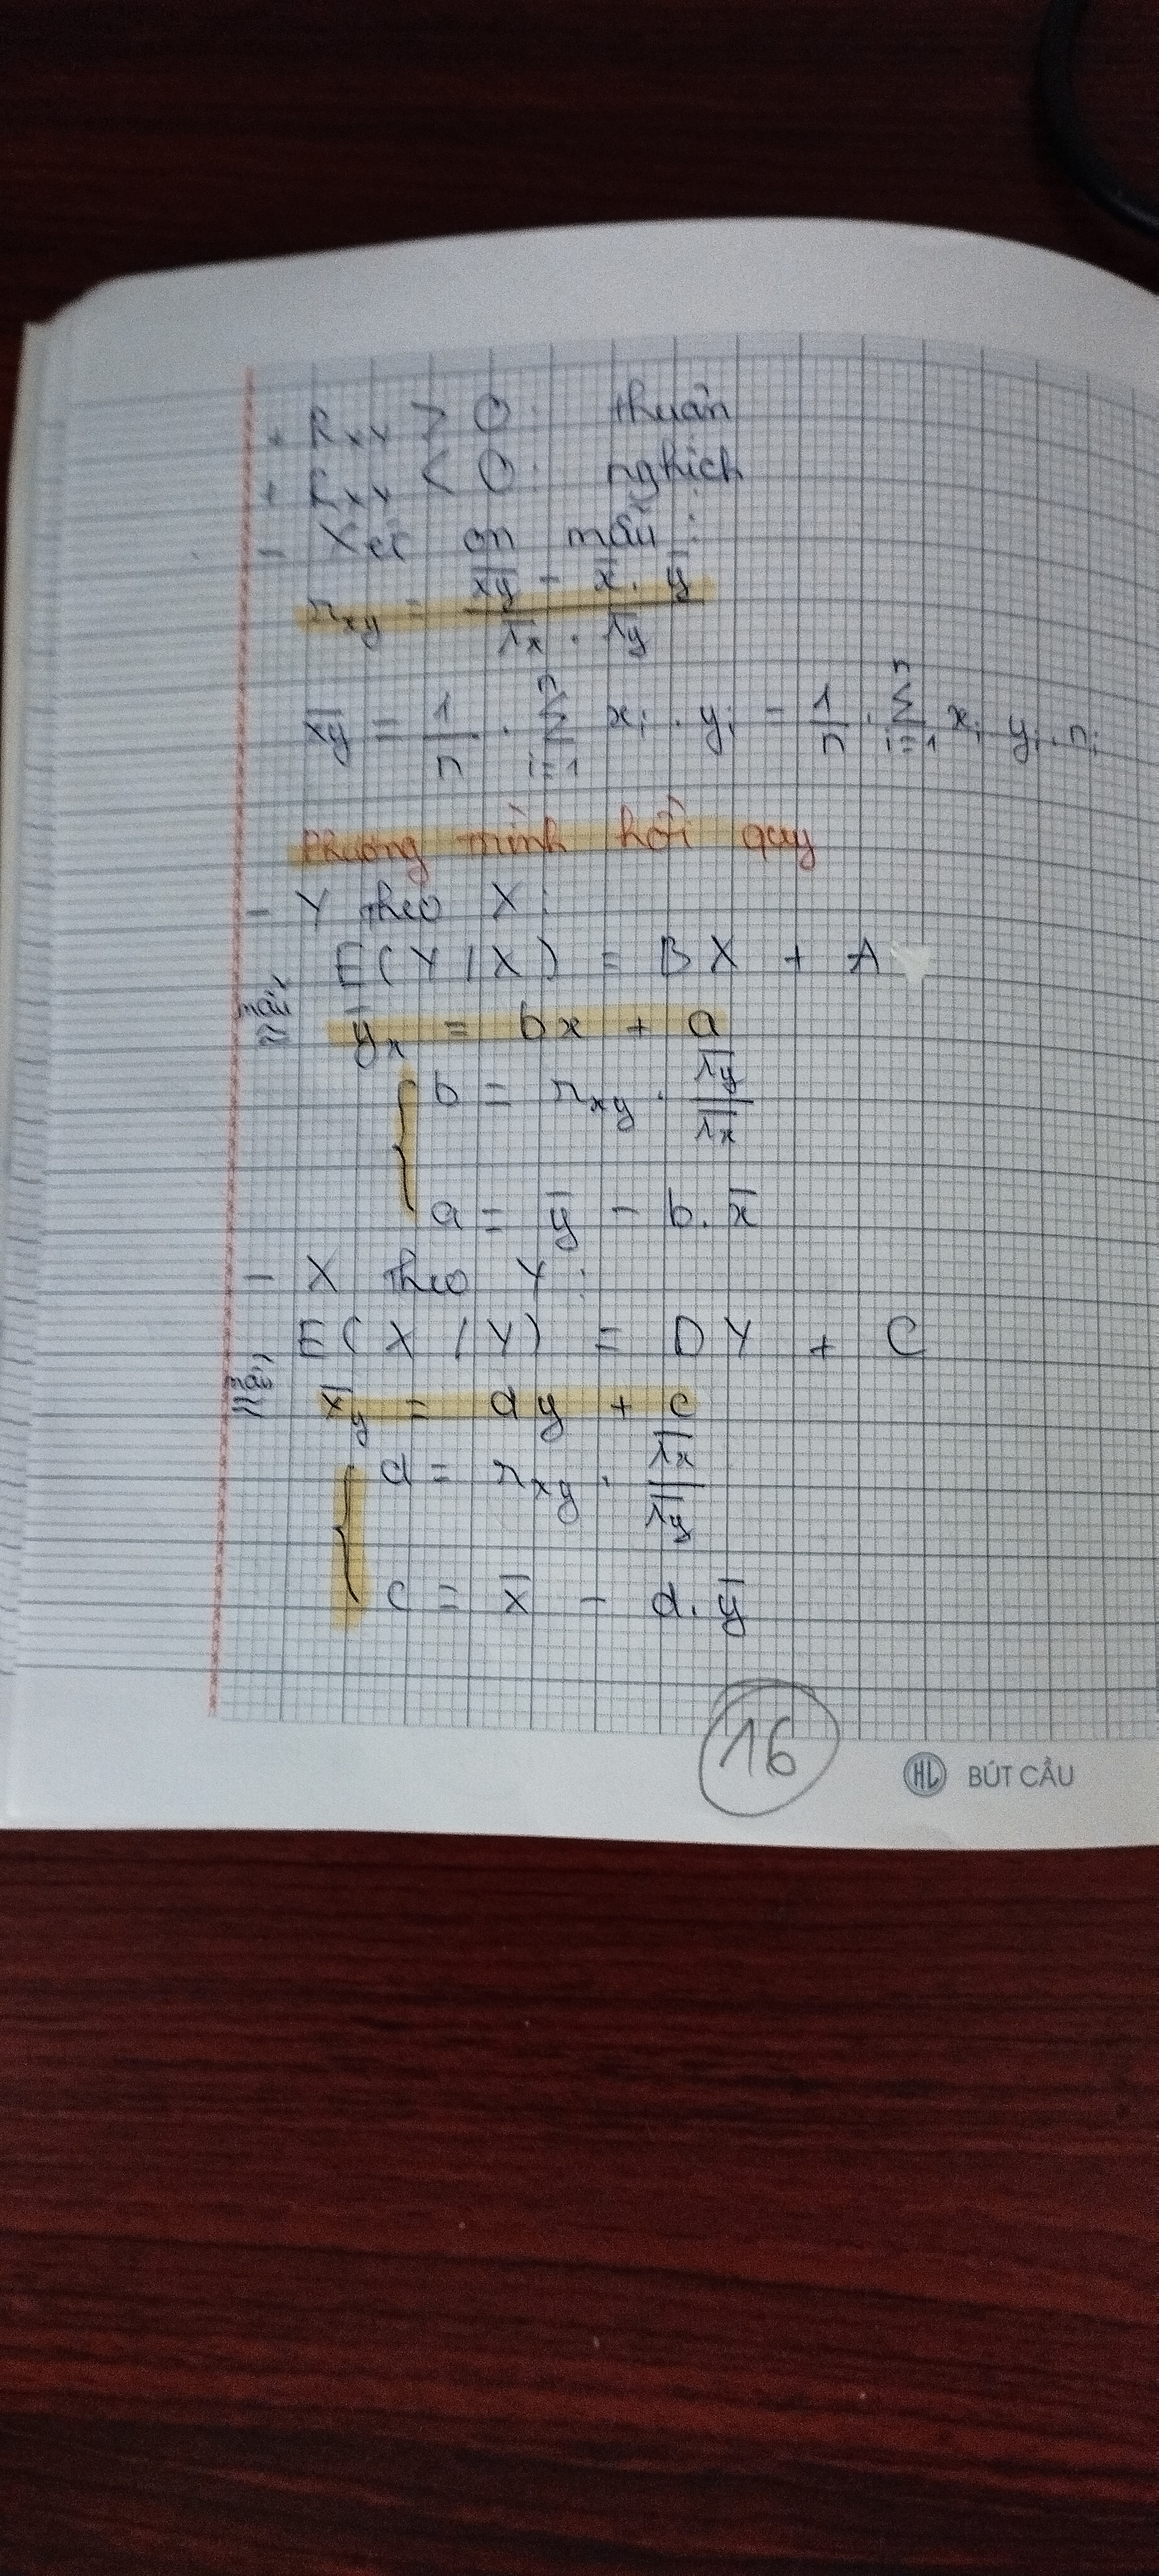 + Rxy > 0 : thuận
+ Rxy < 0 : nghịch
- Xét on mẫu :
r_xy = (x̄ȳ - x̄ . ȳ) / (s̄x . s̄y)
x̄ȳ = 1/n . Σ(i=1→n) xi . yi = 1/n . Σ(i=1→n) xi yi . ni
Phương trình hồi quy
- Y theo X :
E(Y/X) = BX + A
mẫu ≈ ȳx = bx + a
b = r_xy . s̄y / s̄x
a = ȳ - b . x̄
- X theo Y :
E(X/Y) = DY + C
mẫu ≈ x̄y = dy + c
d = r_xy . s̄x / s̄y
c = x̄ - d . ȳ
16
HL BÚT CẦU